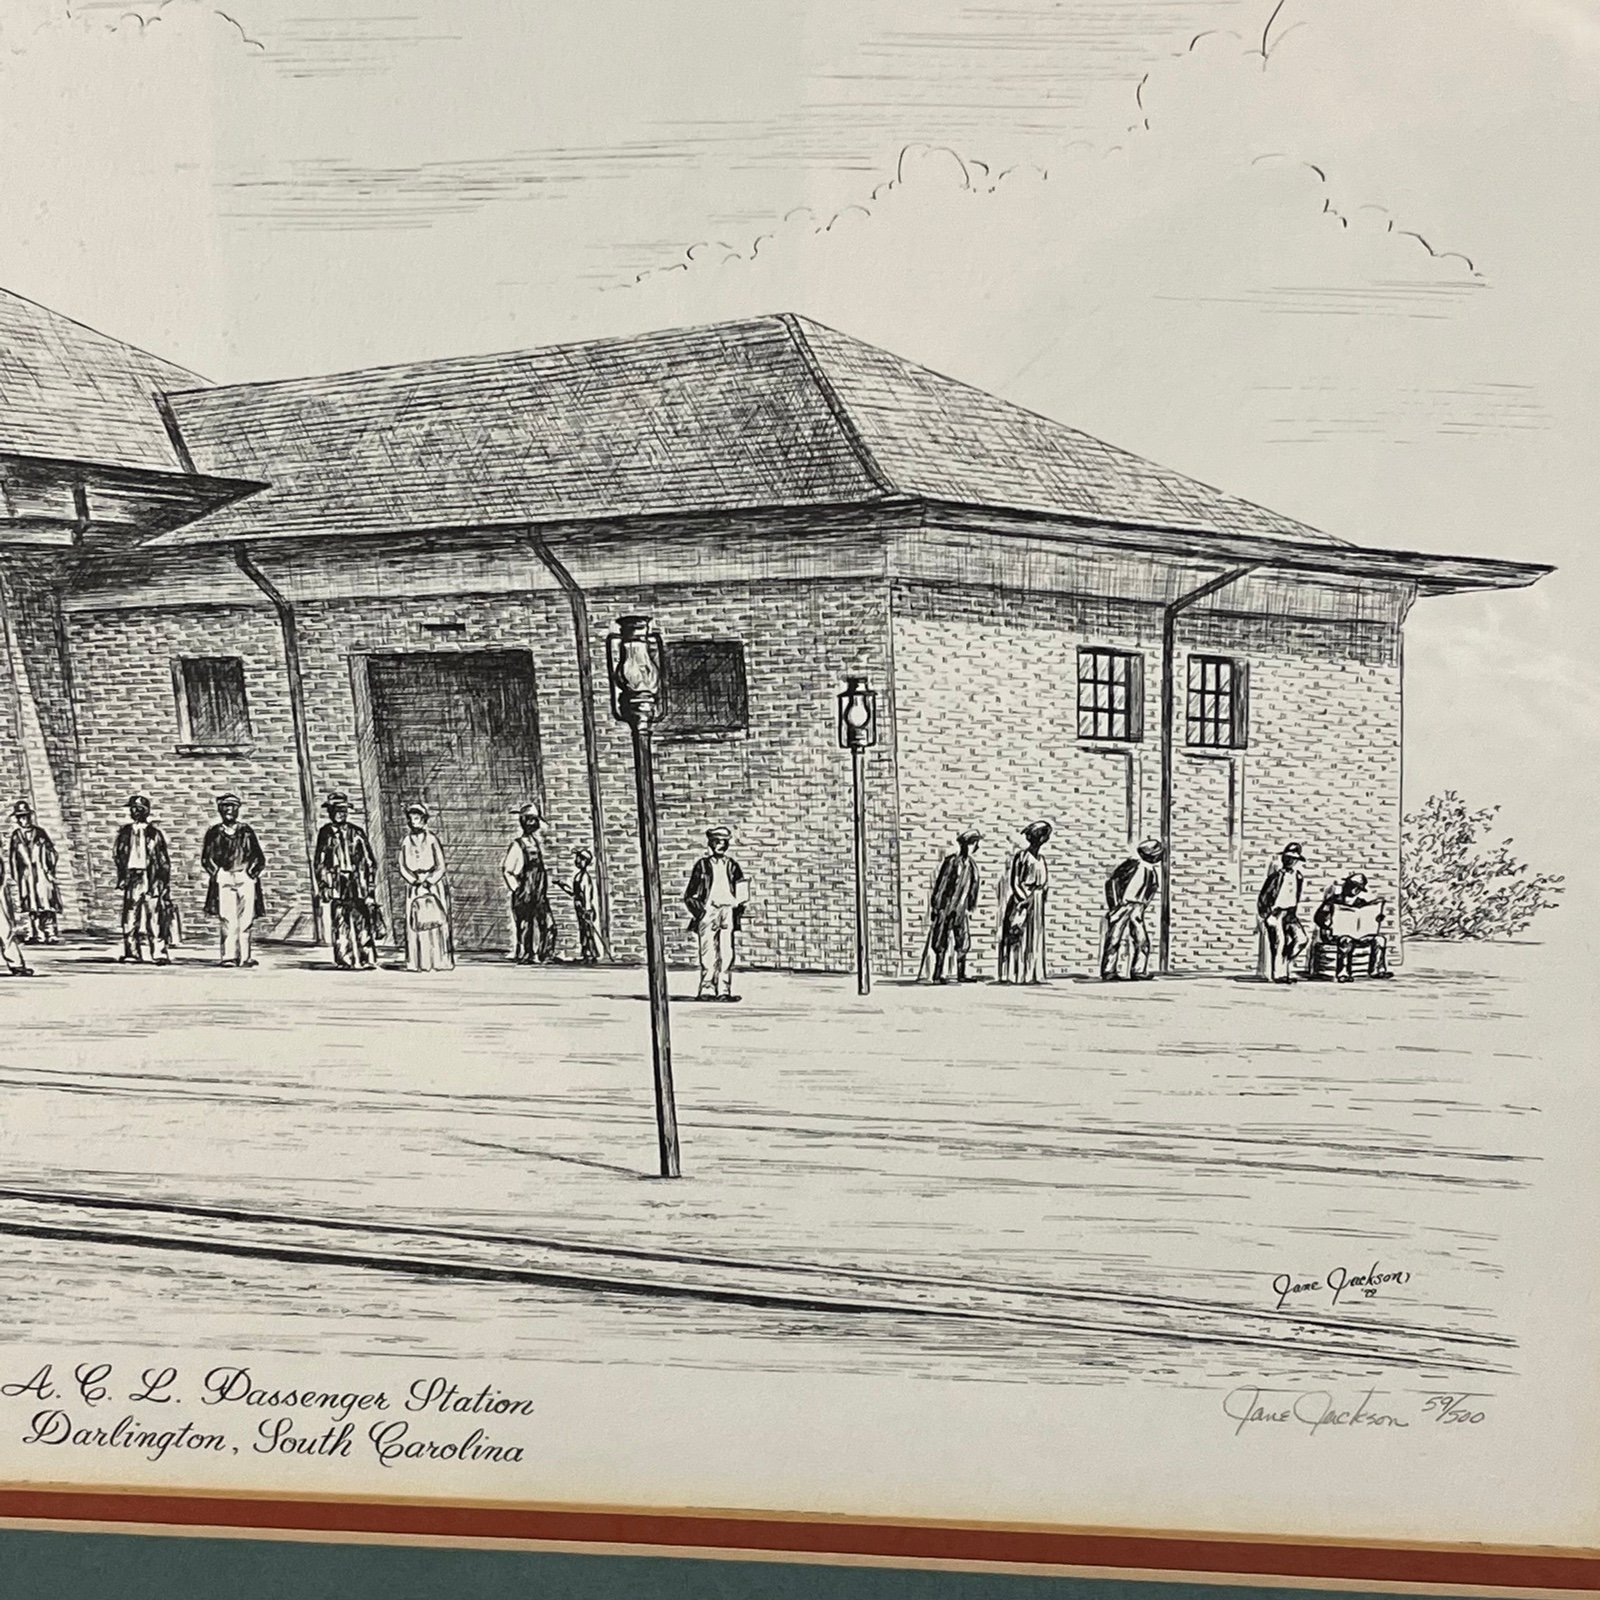 Jane Jackson
'79
A. C. L. Passenger Station
Darlington, South Carolina
Jane Jackson 59/500